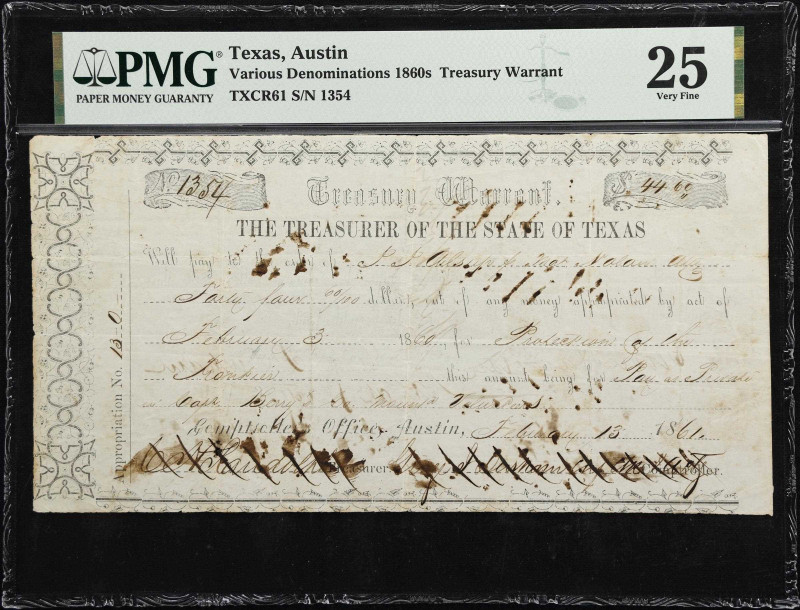 PMG®
PAPER MONEY GUARANTY
Texas, Austin
Various Denominations 1860s Treasury Warrant
TXCR61 S/N 1354
25
Very Fine
No. 1354
Treasury Warrant.
$ 44 60
THE TREASURER OF THE STATE OF TEXAS
Will pay to the order of
Forty four dollars, out of any money appropriated by act of
February 3 1860, for Protection of the
Frontier this amount being for Pay as Private
in Capt in Mount Volunteers
Comptroller's Office, Austin, February 13 1861.
Treasurer Comptroller.
Appropriation No.